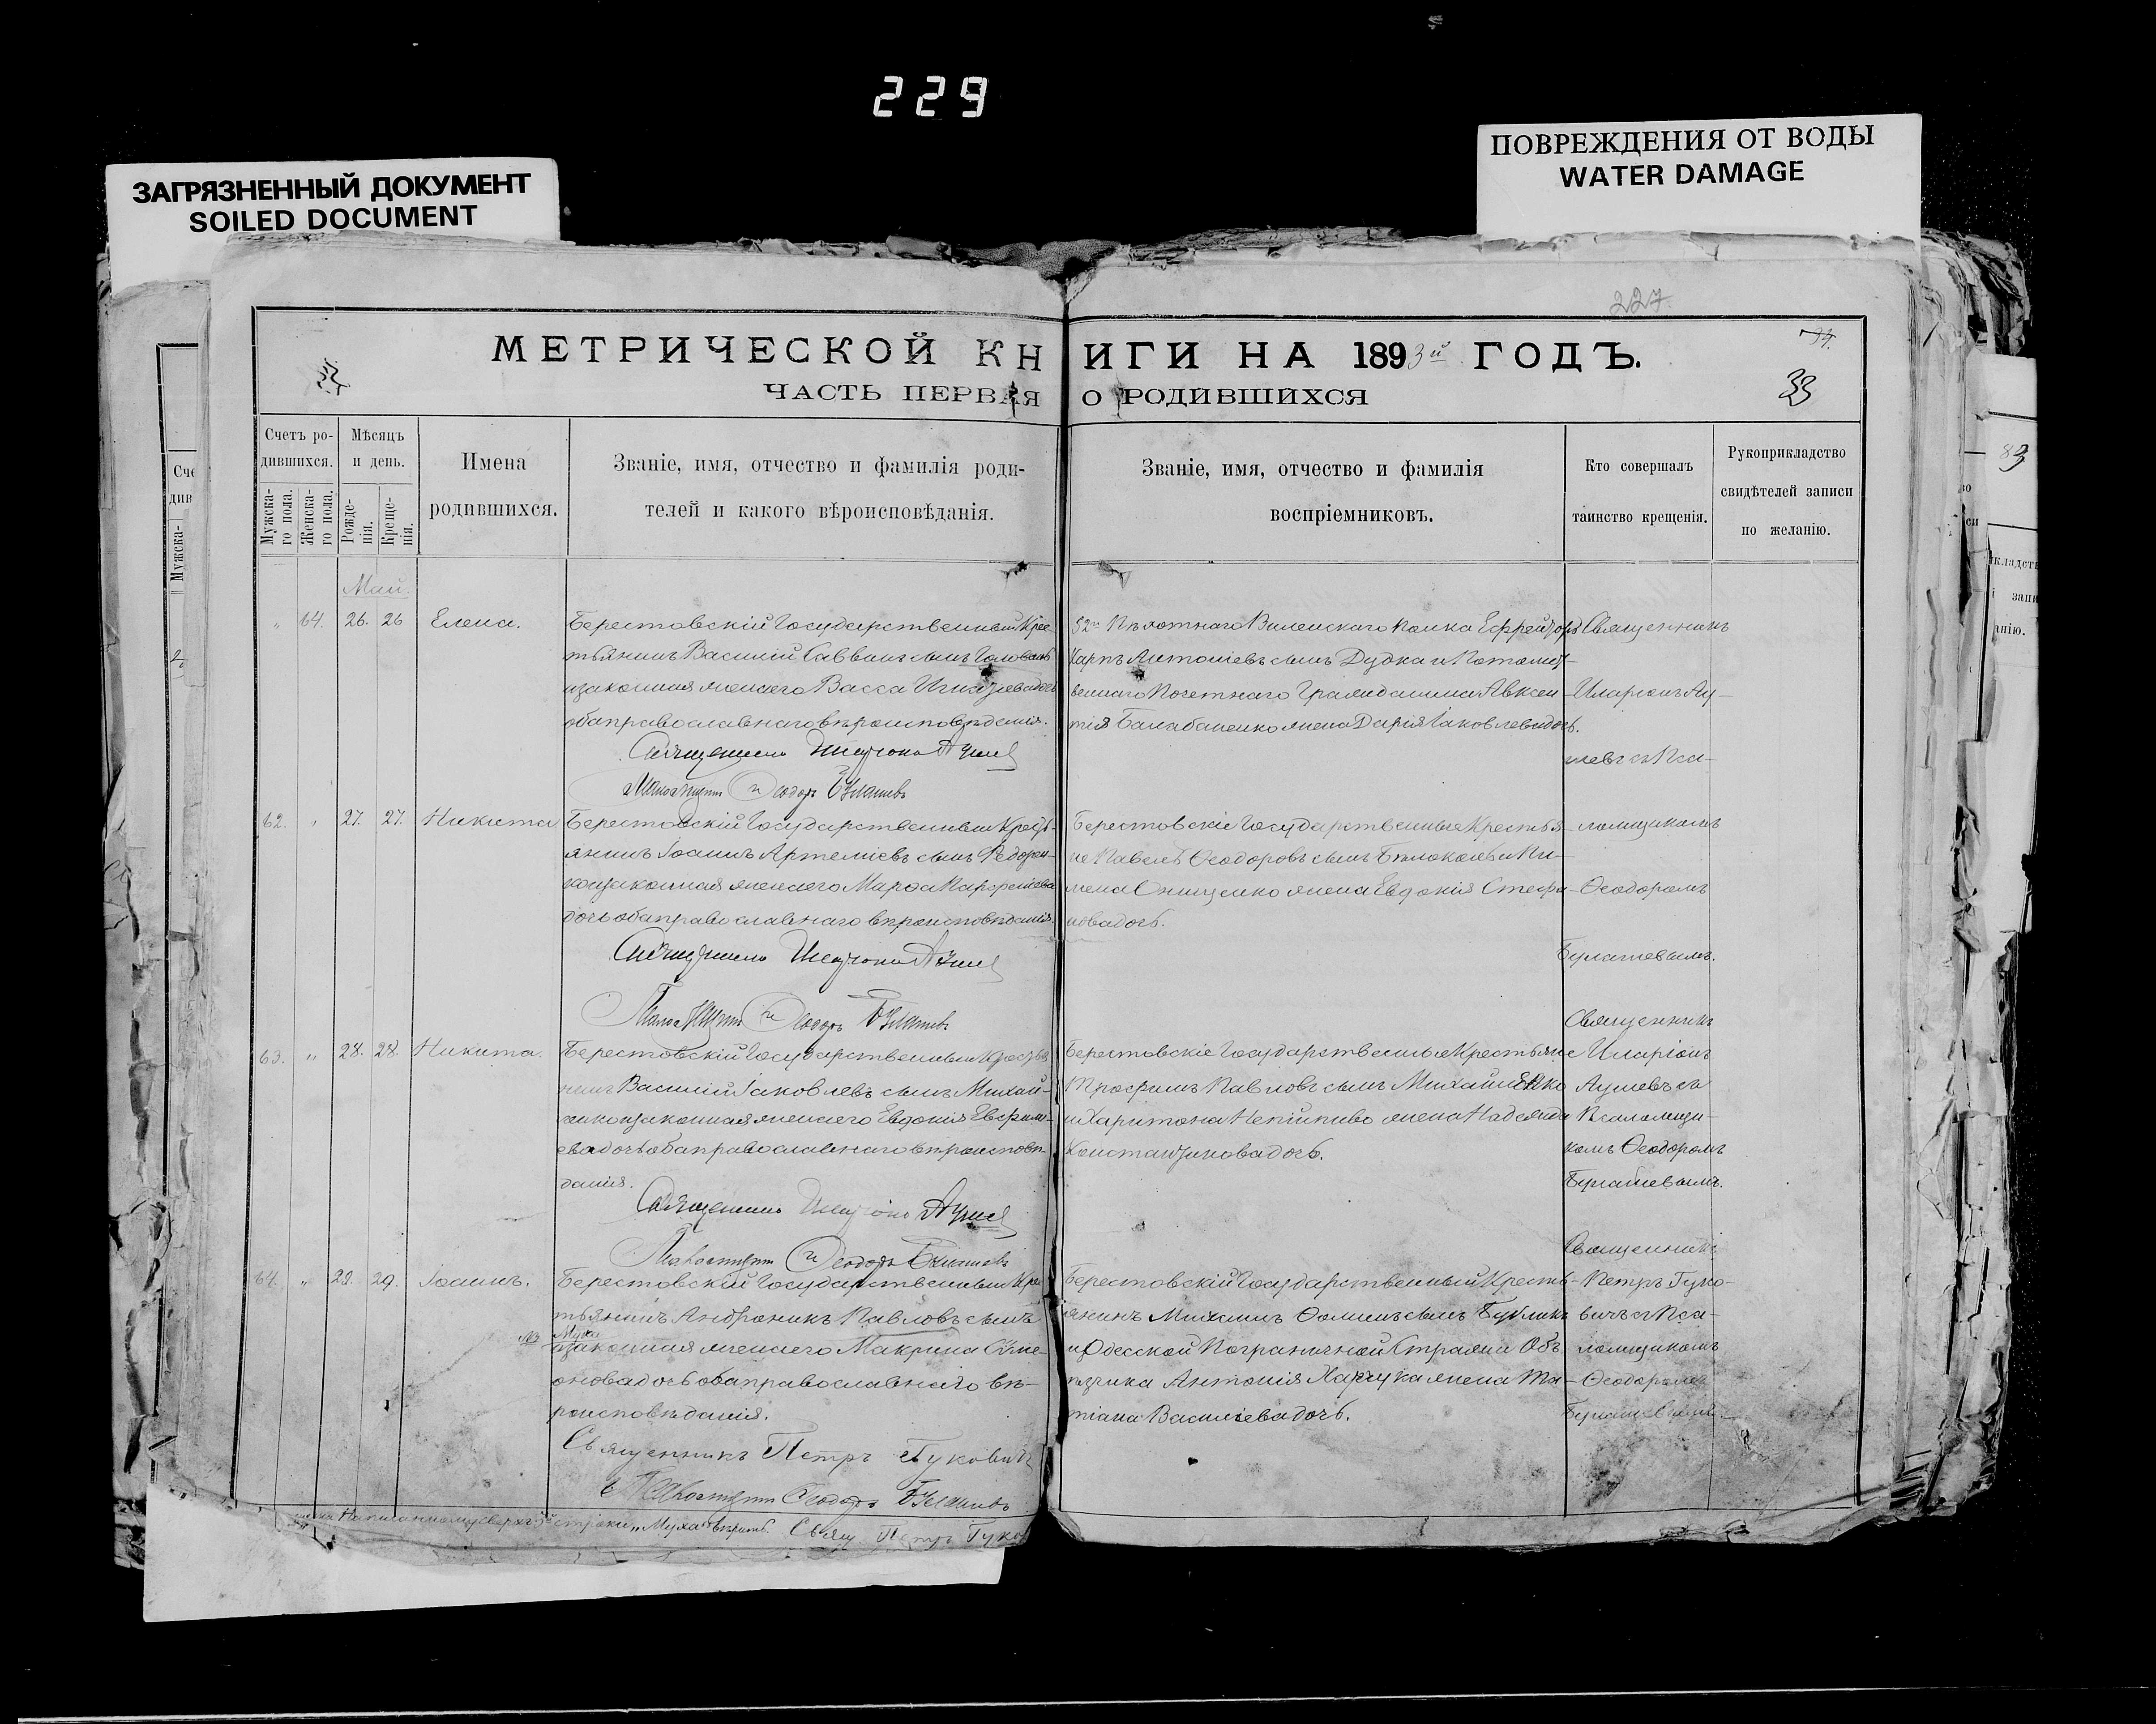 229
ЗАГРЯЗНЕННЫЙ ДОКУМЕНТ
SOILED DOCUMENT
ПОВРЕЖДЕНИЯ ОТ ВОДЫ
WATER DAMAGE
227.
МЕТРИЧЕСКОЙ КНИГИ НА 1893й ГОДЪ.
ЧАСТЬ ПЕРВАЯ О РОДИВШИХСЯ
33
Счетъ ро-
дившихся.
Мужска-
го пола.
Женска-
го пола.
Мѣсяцъ
и день.
Рожде-
нія.
Креще-
нія.
Имена
родившихся.
Званіе, имя, отчество и фамилія роди-
телей и какого вѣроисповѣданія.
Званіе, имя, отчество и фамилія
воспріемниковъ.
Кто совершалъ
таинство крещенія.
Рукоприкладство
свидѣтелей записи
по желанію.
Май.
" 64. 26. 26 Елена.
Берестовскій Государственный Крес
тьянинъ Василій Саввинъ сынъ
и законная жена его Васса
оба православнаго вѣроисповѣданія.
Священникъ Иларіонъ
Псаломщикъ Ѳеодоръ
52го Пѣхотнаго Виленскаго Полка Ефрейторъ
Карпъ Антоніевъ сынъ Дудка и Потомст-
веннаго Почетнаго Гражданина Авксен-
тія Балабаненко жена Дарія Іаковлева дочь.
Священникъ
Иларіонъ Ау-
шевъ съ Пса-
ломщикомъ
Ѳеодоромъ
Булашевымъ.
62. " 27. 27. Никита
Берестовскій Государственный Кресть-
янинъ Іоаннъ Артеміевъ сынъ Федорен-
ко и законная жена его Марѳа
дочь оба православнаго вѣроисповѣданія.
Священникъ Иларіонъ
Псаломщикъ Ѳеодоръ
Берестовскіе Государственные Крестья-
не Павелъ Ѳеодоровъ сынъ
мена Онищенко жена Евдокія Стефа-
нова дочь.
63. " 28. 28. Никита.
Берестовскій Государственный Крестья
нинъ Василій Іаковлевъ сынъ Михай-
ленко и законная жена его Евдокія Евфимі-
ева дочь оба православнаго вѣроисповѣ-
данія.
Священникъ Иларіонъ
Псаломщикъ Ѳеодоръ
Берестовскіе Государственные Крестьяне
Трофимъ Павловъ сынъ Михайленко
и Харитона Непійпиво жена Надежда
Константинова дочь.
Священникъ
Иларіонъ
Аушевъ съ
Псаломщи-
комъ Ѳеодоромъ
Булашевымъ.
64. " 29. 29. Іоаннъ.
Берестовскій Государственный Крес
тьянинъ Андроникъ Павловъ сынъ
Муха
и законная жена его Макрина Симе-
онова дочь оба православнаго вѣ-
роисповѣданія.
Священникъ Петръ Гуковичъ
Псаломщикъ Ѳеодоръ
Берестовскій Государственный Кресть-
янинъ Михаилъ Ѳоминъ сынъ Бублик
и Одесской Пограничной Стражи Объ
ѣздчика Антонія Харчука жена Та-
тіана Василіева дочь.
Священникъ
Петръ Гуко-
вичъ съ Пса-
ломщикомъ
Ѳеодоромъ
Булашевымъ
Написанному сверхъ строки „Муха" вѣрить. Свящ. Петръ Гуко